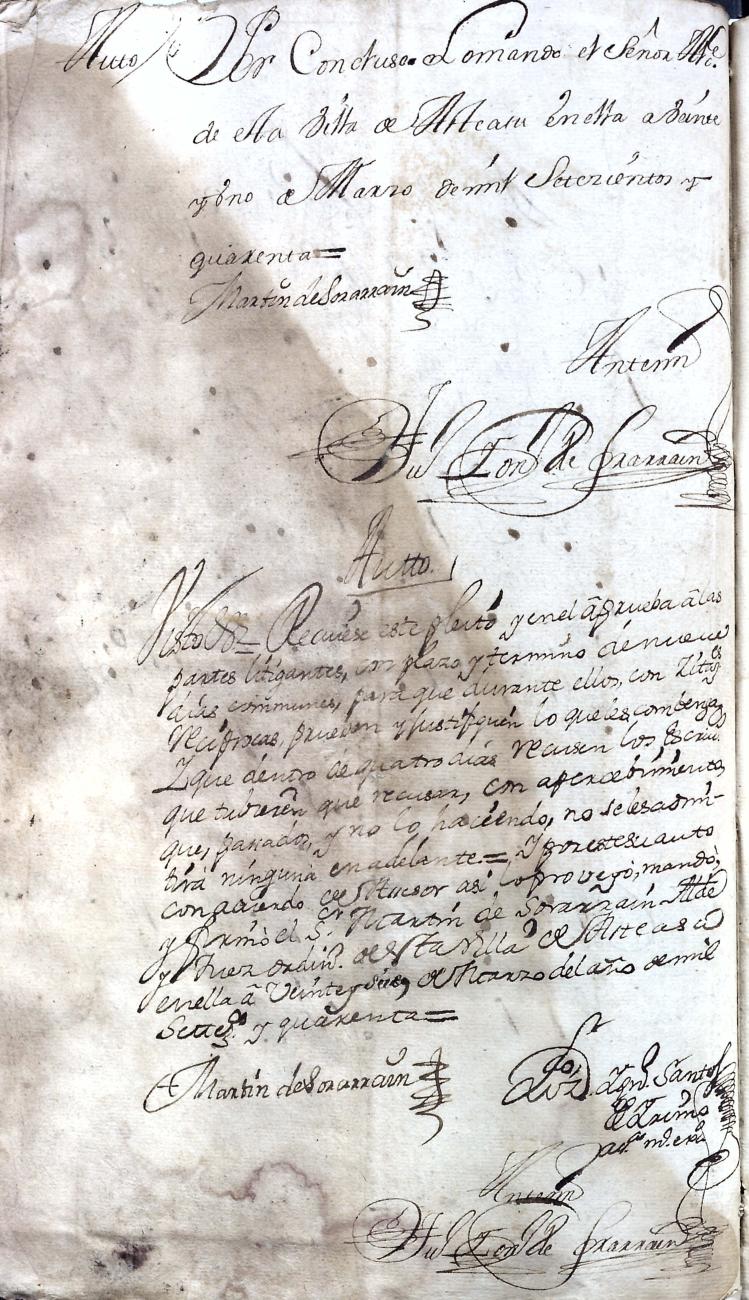 Auto
Por Concluso. Lo mando el Señor Alce.
de esta Villa de Ateasu en ella a veinte
y uno de Marzo de mil Setezientos y
quarenta =
Martin de Sorarrain
Antemi
de Sorarrain
Autto.
Visto Recivese este pleito y en el â prueba â las
partes litigantes, con plazo y termino de nueve
dias communes, para que durante ellos, con Zitas
recíprocas, prueben y justifiquen lo que les combenga
Y que dentro de quatro dias recusen los
que tubieren que recusar, con apercebimiento
que, pasado, y no lo haciendo, no seles admi-
tirá ninguna en adelante = Y por este su auto
con acuerdo de Asesor así lo proveyó, mandó,
y firmó el Sr. Martin de Sorarrain Alde
y Juez ordin.o de esta villa de Asteasu
en ella â Veinte y de Marzo del año de mil
Settez.s y quarenta =
Martin de Sorarrain
Santos
Antemi
de Sorarrain